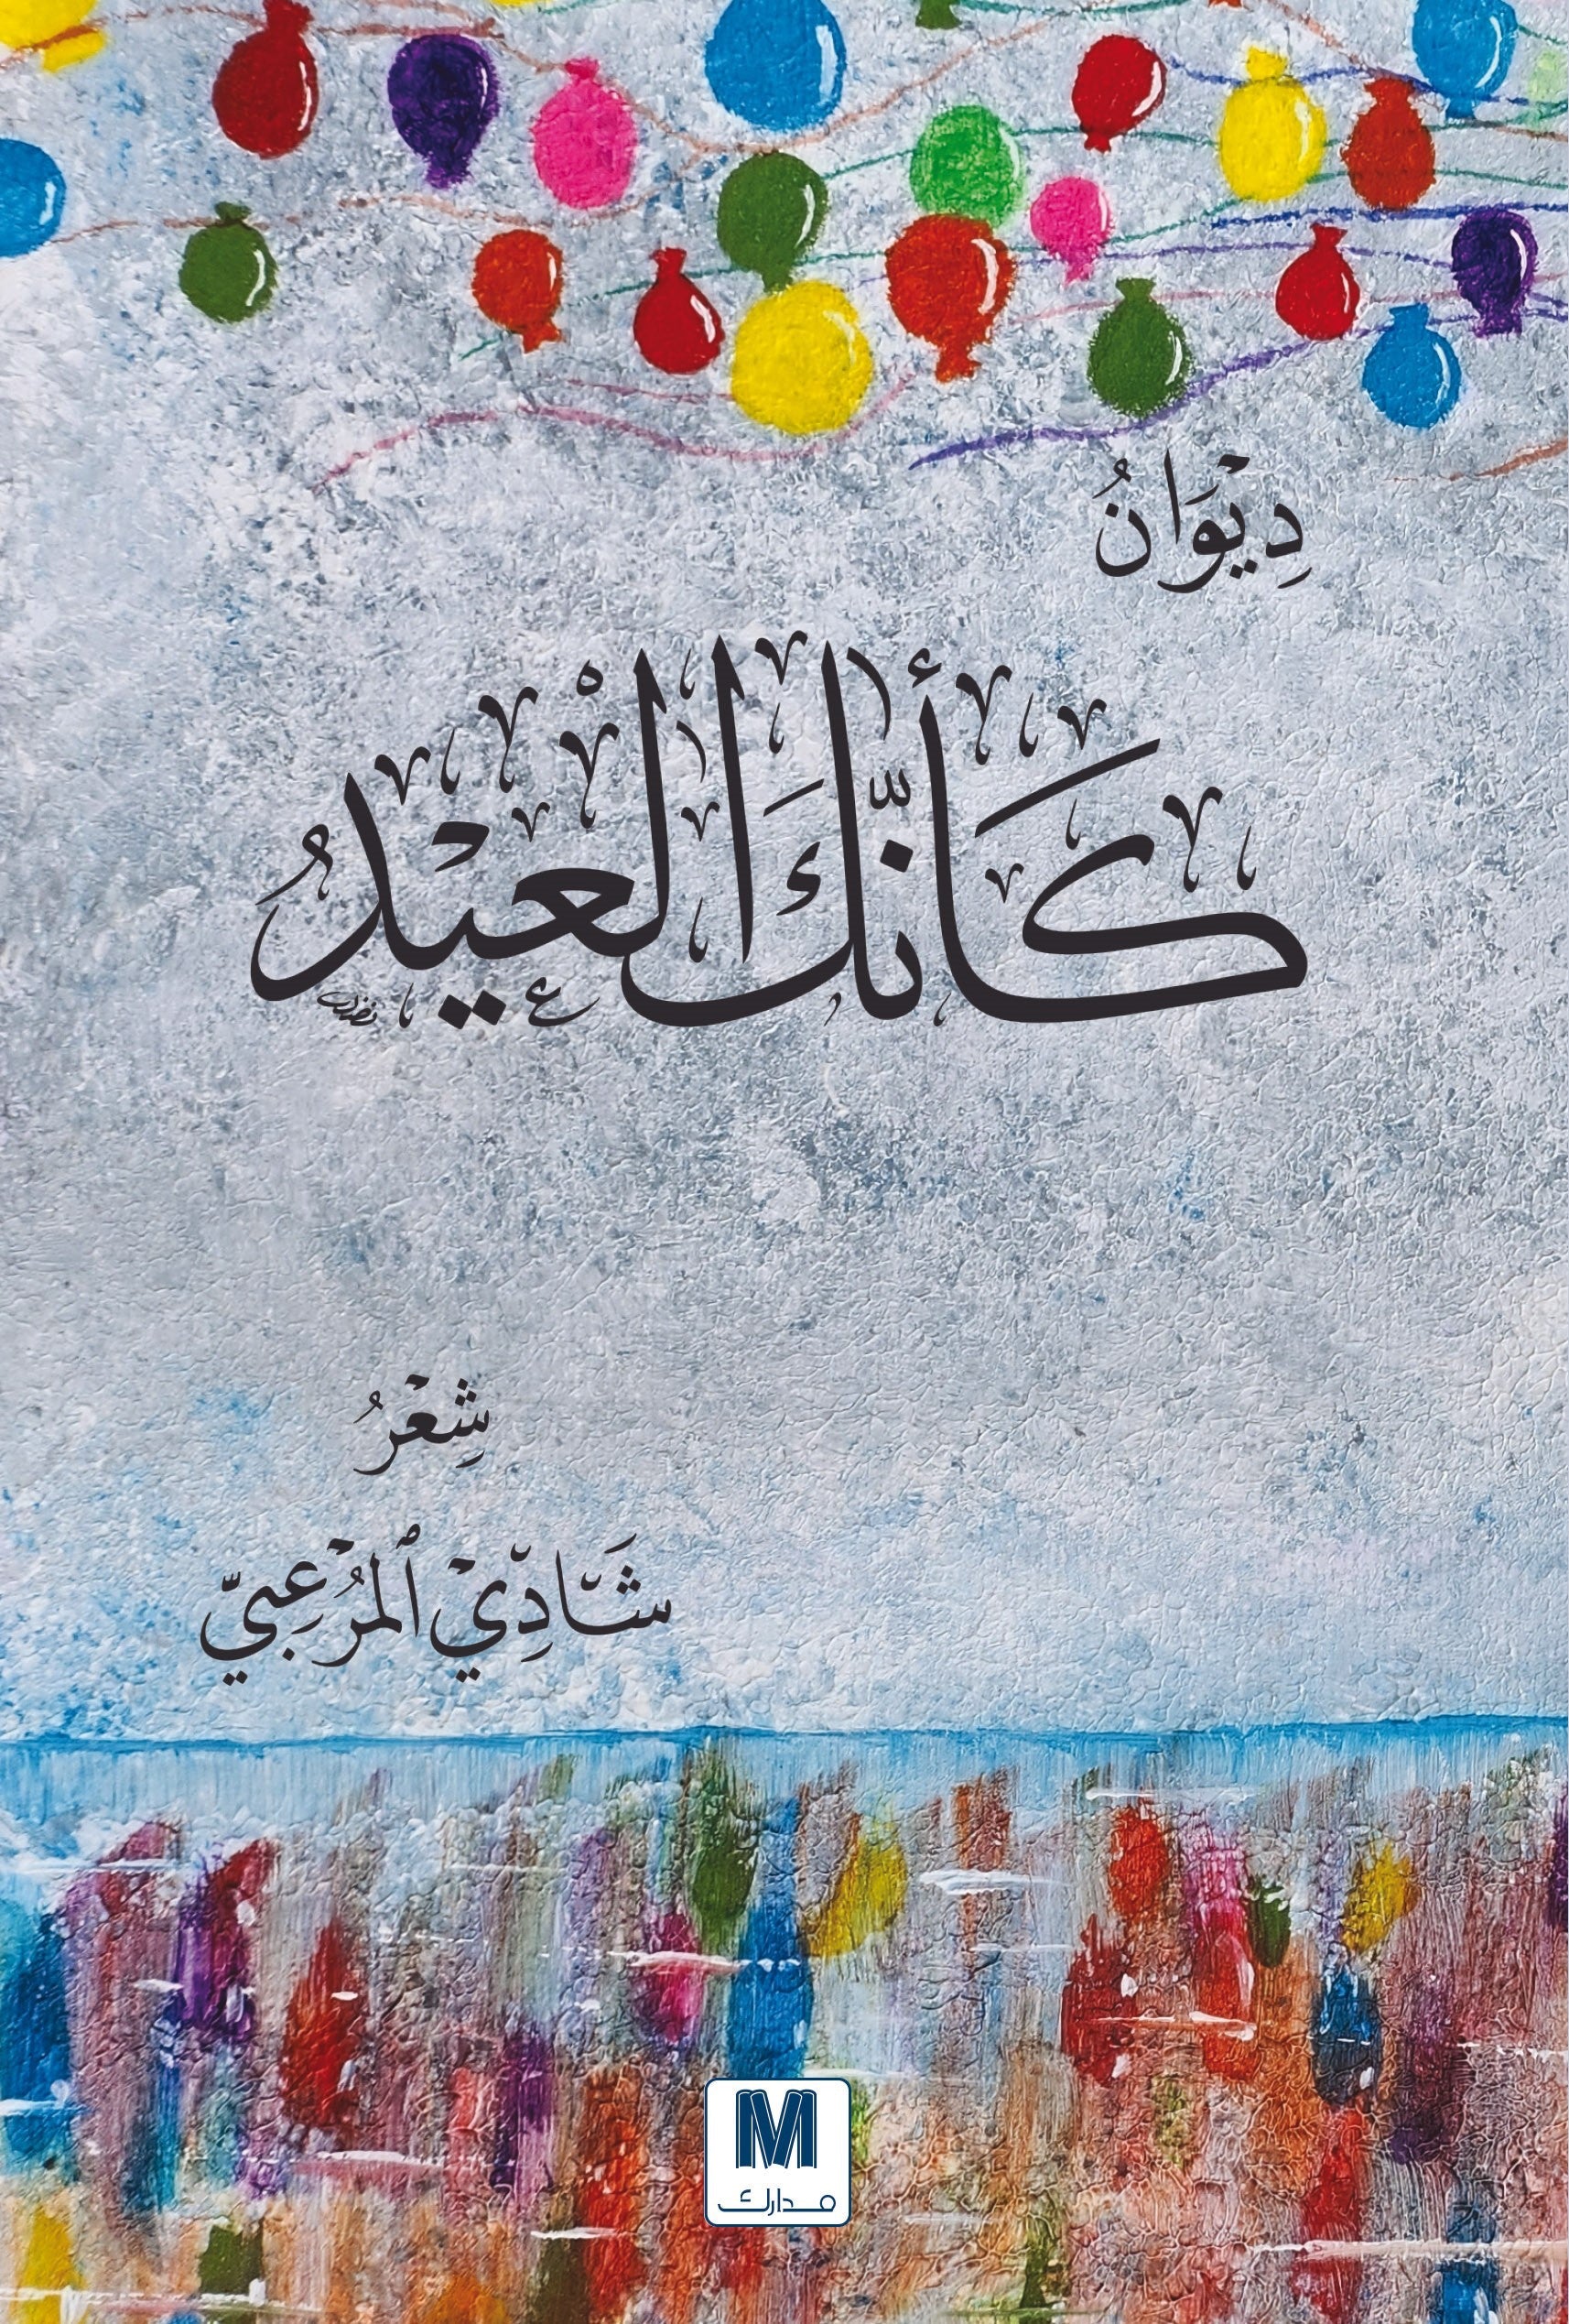 دِيْوَانُ
كَأَنَّكَ الْعِيْدُ
شِعْرُ
شَادِيْ ٱلمُرْعِبِيّ
M
مدارك